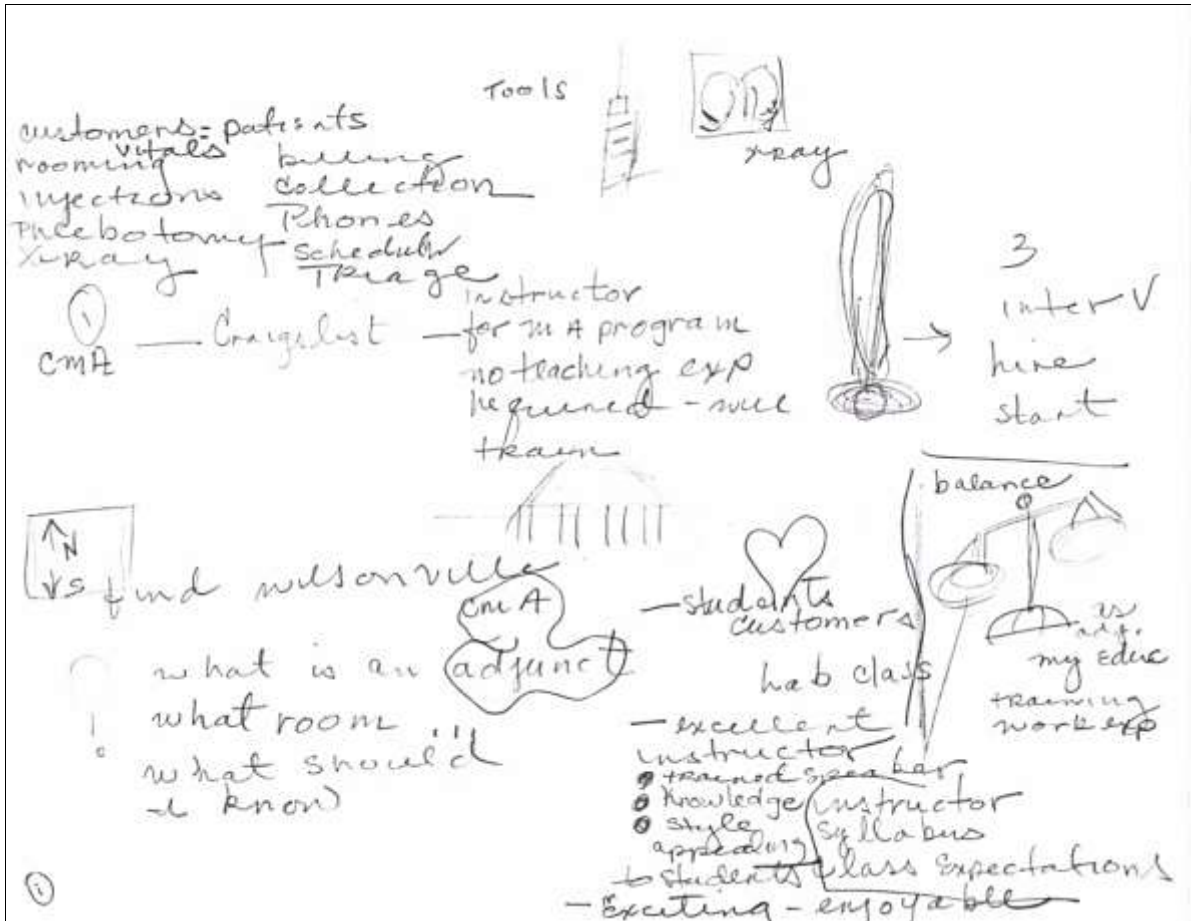 Tools
xray
customers = patients
rooming vitals
injections
Phlebotomy
X-Ray
billing
collection
Phones
Schedulr
TRiage
1
CMA — Craigslist — instructor
for MA program
no teaching exp
Required - will
train
→ 3
interV
hire
start
↑N
↓S
find wilsonville
CMA
what is an adjunct
what room
what should
I know
!!!
— students
customers
Lab class
— excellent
instructor
trained speaker
Knowledge
style
appealing
to students
— Exciting - enjoyable
instructor
Syllabus
Class Expectations
balance
my Educ
training
work exp
i